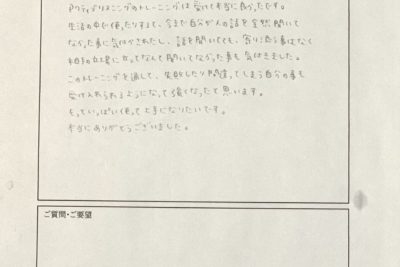 アクティブリスニングのトレーニングは受けて本当に良かったです。
生活の中で使ったりして、今まで自分が人の話を全然聞いて
なかった事に気付かされたし、話を聞いてても、寄りそう事はなく
相手の立場に立ってなんて聞いてなかった事も気付きました。
このトレーニングを通して、失敗したり間違ってしまう自分の事も
受け入れられるようになって強くなったと思います。
もっといっぱい使って上手になりたいです。
本当にありがとうございました。
ご質問・ご要望